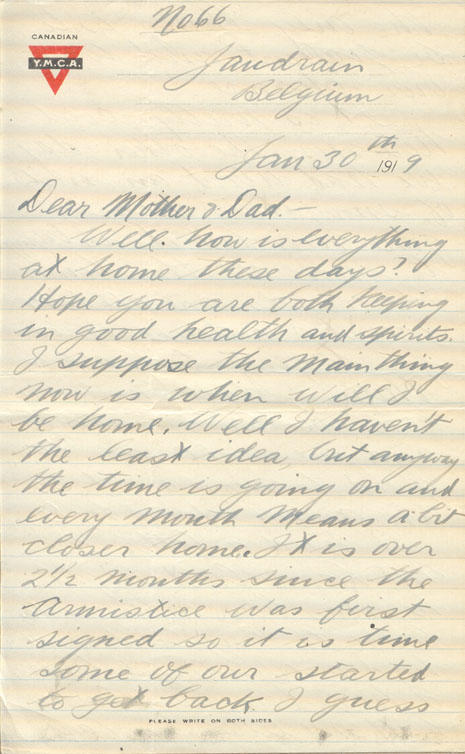 No 66
CANADIAN
Y.M.C.A.
Jandrain
Belgium
Jan 30th 1919
Dear Mother & Dad.—
Well. how is everything
at home these days?
Hope you are both keeping
in good health and spirits.
I suppose the main thing
now is when will I
be home. Well I haven't
the least idea, but anyway
the time is going on and
every month means a bit
closer home. It is over
2½ months since the
Armistice was first
signed so it is time
some of our started
to get back. I guess
PLEASE WRITE ON BOTH SIDES